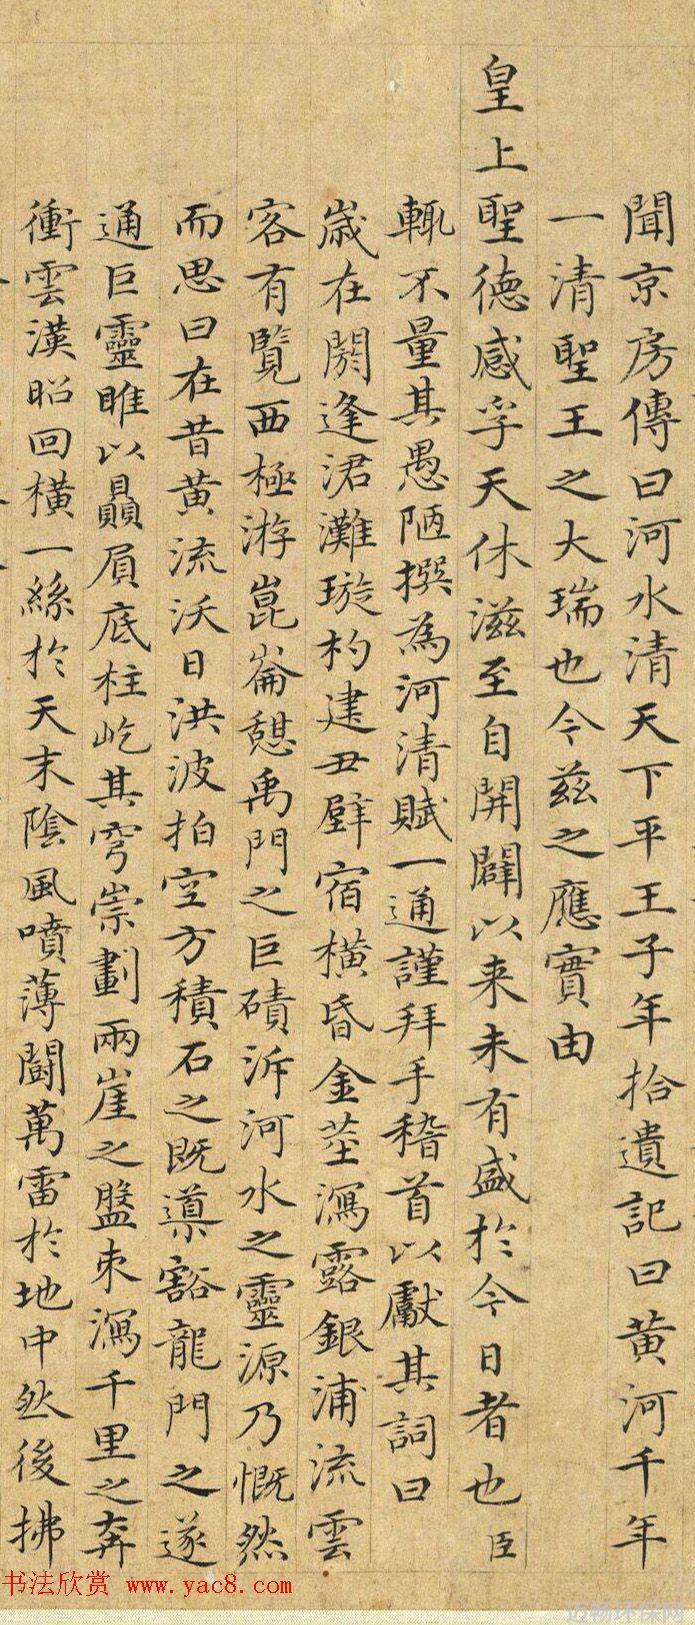 聞京房傳曰河水清天下平王子年拾遺記曰黃河千年
一清聖王之大瑞也今茲之應實由
皇上聖德感孚天休滋至自開闢以来未有盛於今日者也臣
輒不量其愚陋撰為河清賦一通謹拜手稽首以獻其詞曰
歲在閼逢涒灘璇杓建丑壁宿橫昏金莖瀉露銀浦流雲
客有覽西極游崑崙憩禹門之巨磧泝河水之靈源乃慨然
而思曰在昔黃流沃日洪波拍空方積石之既導豁龍門之遂
通巨靈睢以贔屓底柱屹其穹崇劃兩崖之盤束瀉千里之奔
衝雲漢昭回橫一絲於天末陰風噴薄鬪萬雷於地中然後拂
书法欣赏 www.yac8.com
迈畅环保网